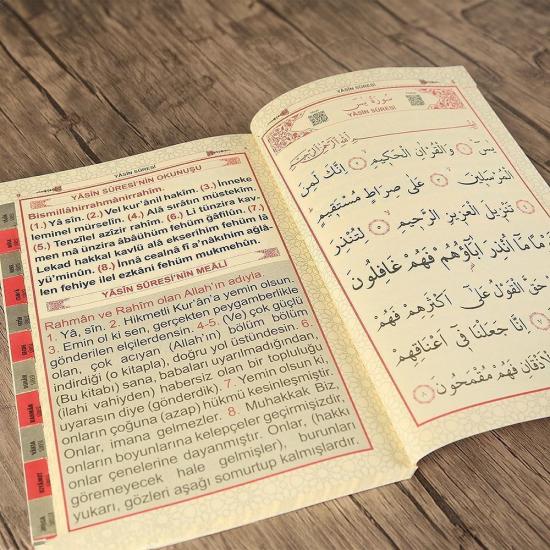 YÂSÎN SÛRESİ
YÂSÎN SÛRESİ'NİN OKUNUŞU
Bismillâhirrahmânirrahîm.
(1.) Yâ sîn. (2.) Vel kur'ânil hakîm. (3.) İnneke
leminel mürselîn. (4.) Alâ sırâtın müstekîm.
(5.) Tenzîlel azîzir rahîm. (6.) Li tünzira kav-
men mâ ünzira âbâühüm fehüm ğâfilûn. (7.)
Lekad hakkal kavlü alâ ekserihim fehüm lâ
yü'minûn. (8.) İnnâ cealnâ fî a'nâkıhim ağlâ-
len fehiye ilel ezkâni fehüm mukmehûn.
YÂSÎN SÛRESİ'NİN MEÂLİ
Rahmân ve Rahîm olan Allah'ın adıyla
1. Yâ, sîn. 2. Hikmetli Kur'an'a yemin olsun.
3. Emin ol ki sen, gerçekten peygamberlikle
gönderilen elçilerdensin. 4-5. (Ve) çok güçlü
olan, çok acıyan (Allah'ın) bölüm bölüm
indirdiği (o kitapla), doğru yol üstündesin. 6.
(Bu kitabı) sana, babaları uyarılmadığından,
(ilahi vahiyden) habersiz olan bir topluluğu
uyarasın diye (gönderdik). 7. Yemin olsun ki,
onların çoğuna (azap) hükmü kesinleşmiştir.
Onlar, imana gelmezler. 8. Muhakkak Biz,
onların boyunlarına kelepçeler geçirmişizdir.
onlar çenelerine dayanmıştır. Onlar, (hakkı
göremeyecek hale gelmişler), burunları
yukarı, gözleri aşağı somurtup kalmışlardır.
YÂSÎN SÛRESİ
سُورَةُ يٰسٓ
YÂSÎN SÛRESİ
يٰسٓ ﴿١﴾ وَالْقُرْاٰنِ الْحَك۪يمِ ﴿٢﴾ اِنَّكَ لَمِنَ
الْمُرْسَل۪ينَ ﴿٣﴾ عَلٰى صِرَاطٍ مُسْتَق۪يمٍ ﴿٤﴾
تَنْز۪يلَ الْعَز۪يزِ الرَّح۪يمِ ﴿٥﴾ لِتُنْذِرَ
قَوْمًا مَٓا اُنْذِرَ اٰبَٓاؤُ۬هُمْ فَهُمْ غَافِلُونَ
حَقَّ الْقَوْلُ عَلٰٓى اَكْثَرِهِمْ فَهُمْ
اِنَّا جَعَلْنَا ف۪ٓي اَعْنَاقِهِمْ
الْاَذْقَانِ فَهُمْ مُقْمَحُونَ ﴿٨﴾